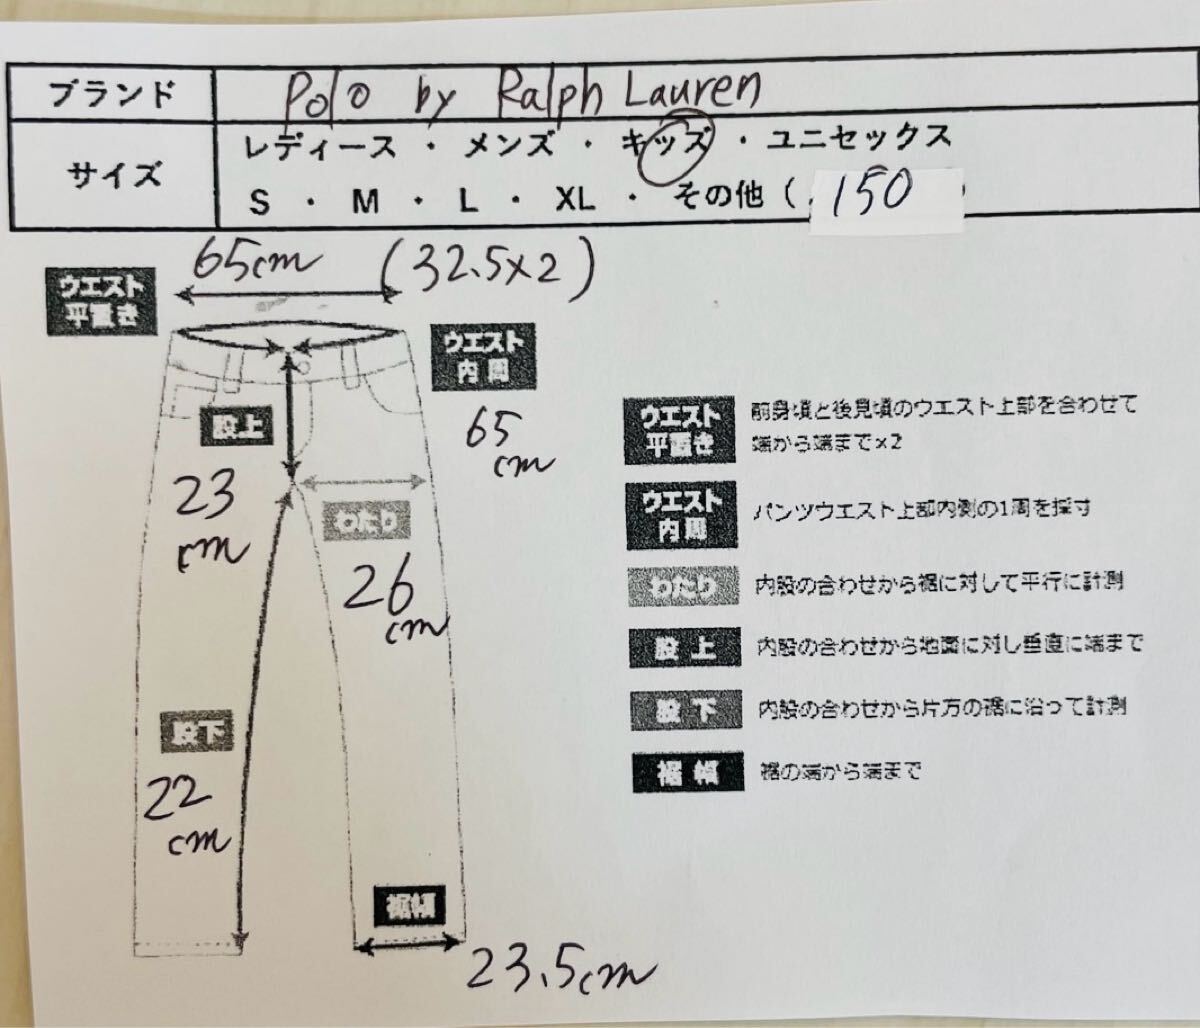 ブランド Polo by Ralph Lauren
サイズ レディース ・ メンズ ・ キッズ ・ ユニセックス
S ・ M ・ L ・ XL ・ その他 ( 150 )
65cm (32.5×2)
ウエスト
平置き
ウエスト
内周
65
cm
股上
23
cm
わたり
26
cm
股下
22
cm
裾幅
23.5cm
ウエスト
平置き
前身頃と後見頃のウエスト上部を合わせて
端から端まで×2
ウエスト
内周
パンツウエスト上部内側の1周を採寸
わたり 内股の合わせから裾に対して平行に計測
股上 内股の合わせから地面に対し垂直に端まで
股下 内股の合わせから片方の裾に沿って計測
裾幅 裾の端から端まで